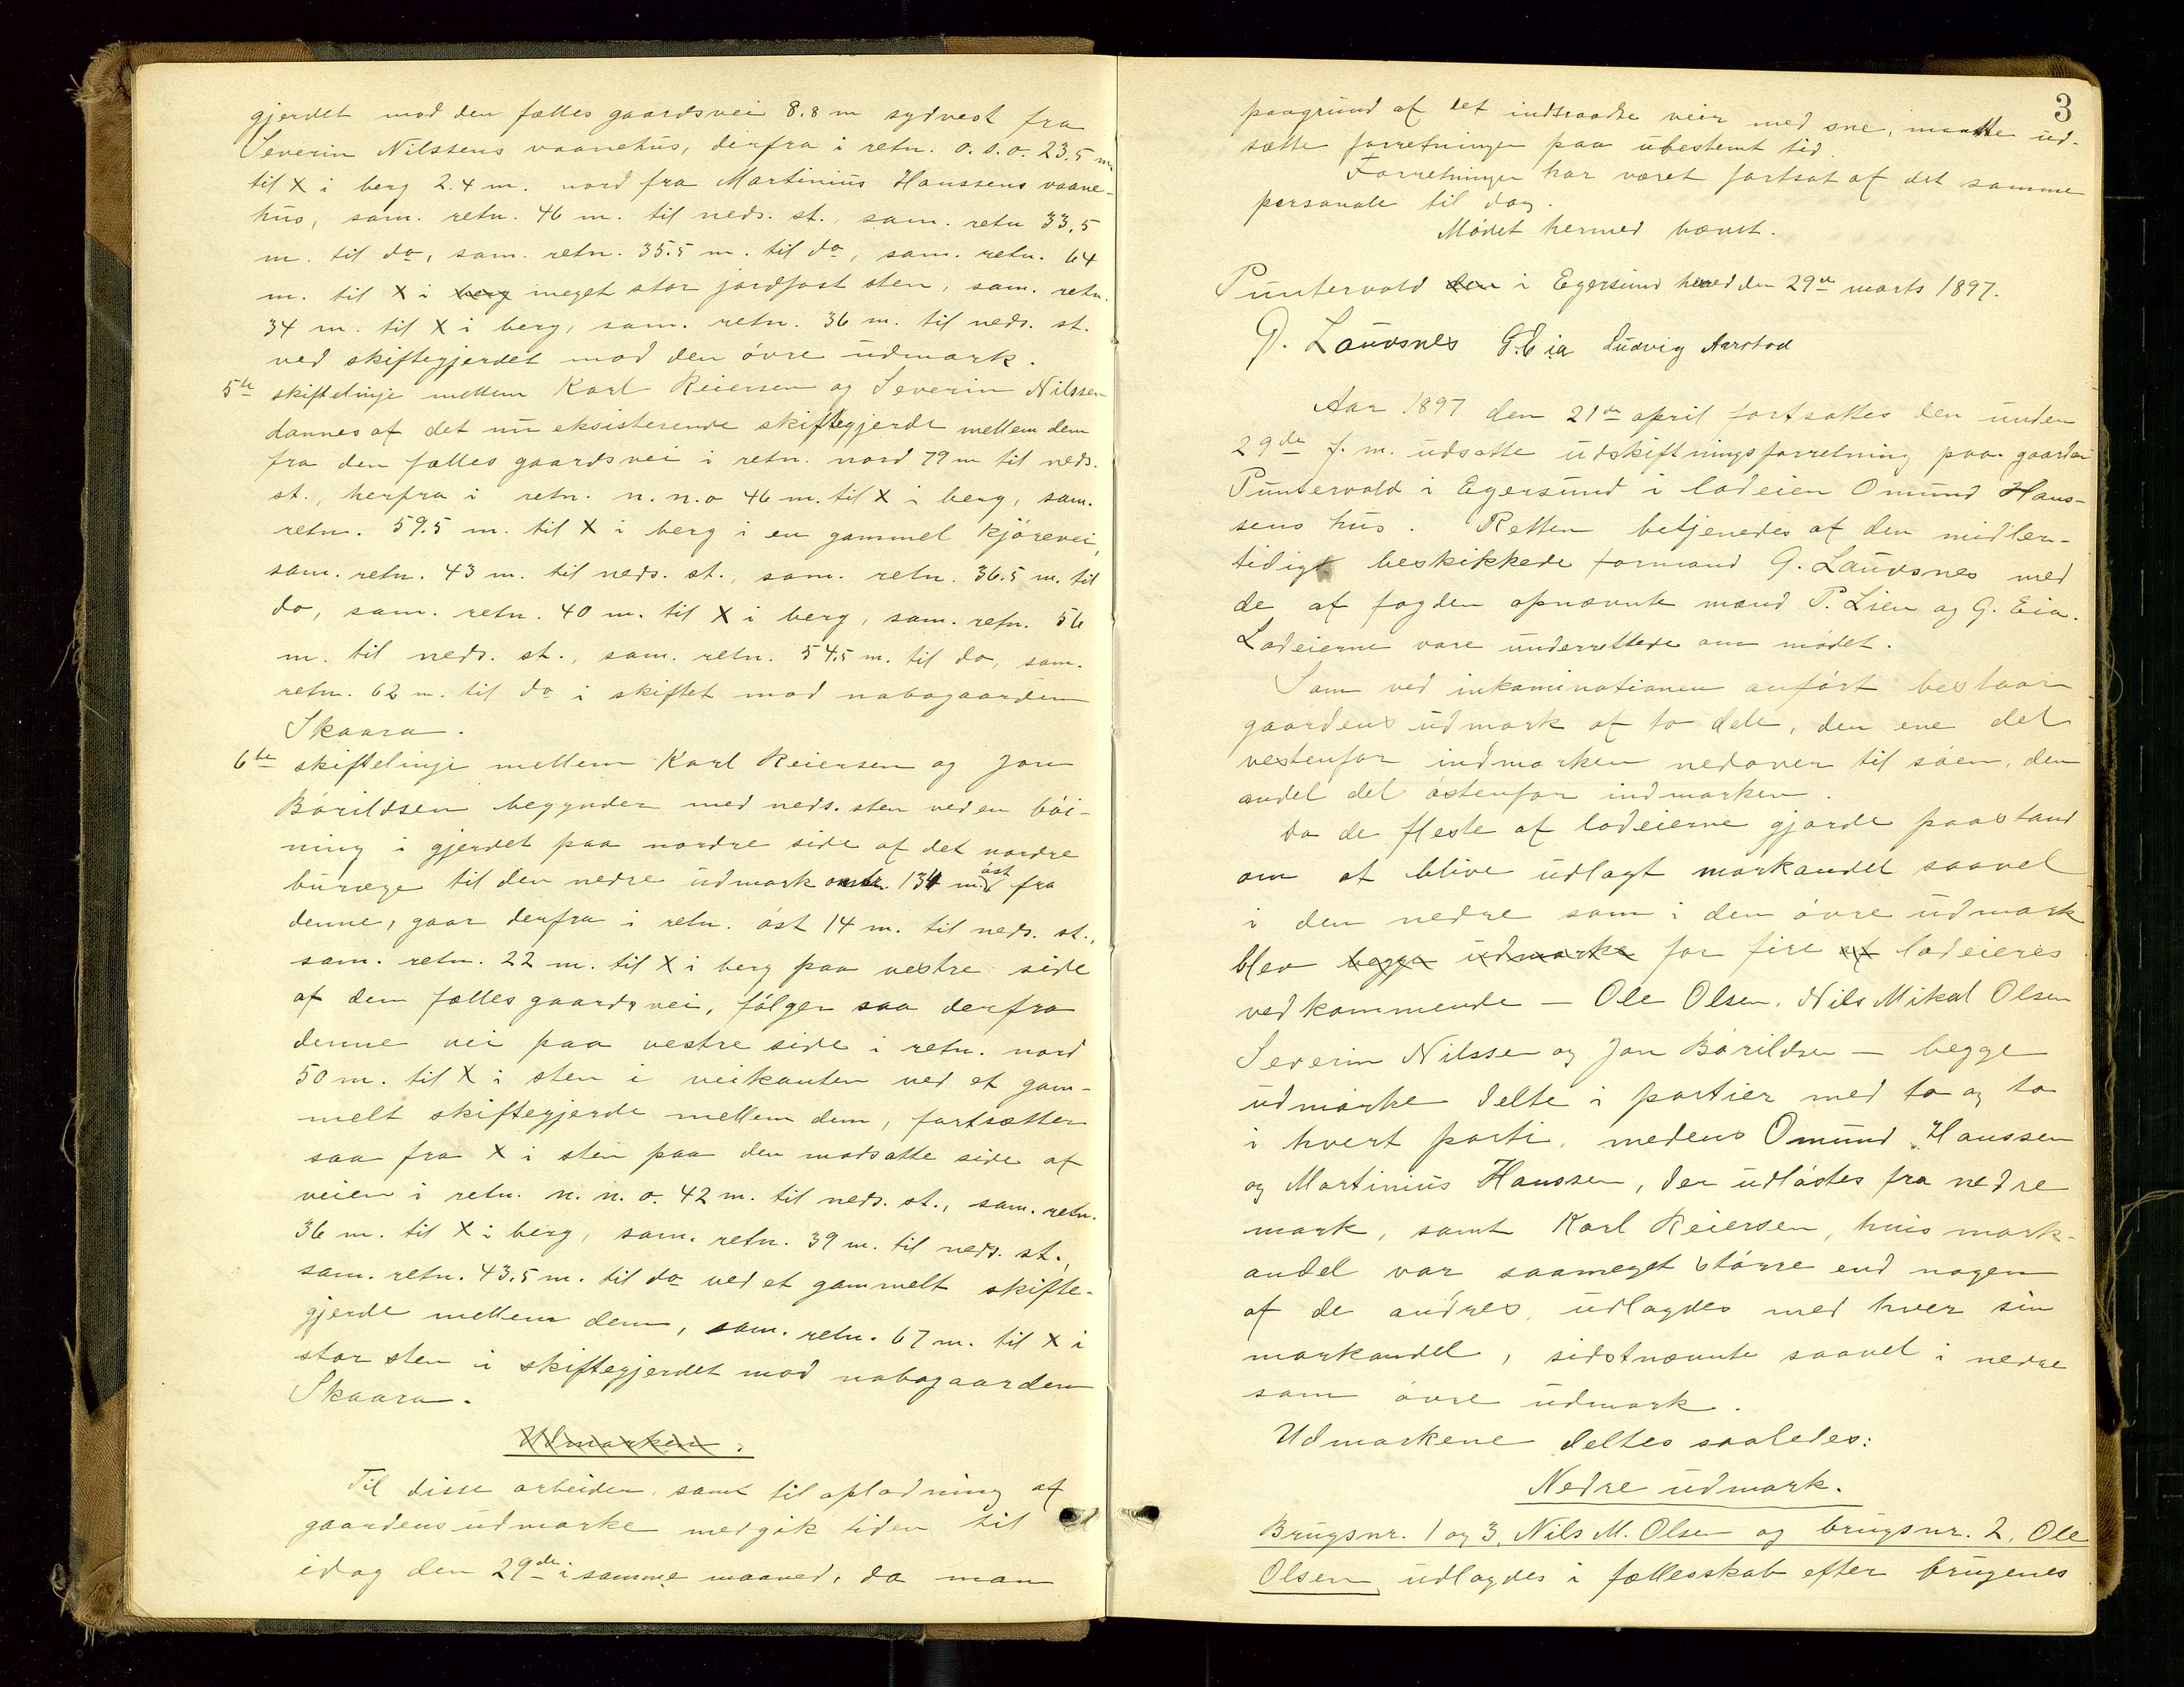 gjerdet mod den fælles gaardsvei 8.8 m sydvest fra
Severin Nilssens vaanehus, derfra i retn. o. s. o. 23.5 m.
til X i berg 2.4 m. nord fra Martinius Hanssens vaane-
hus, sam. retn. 46 m. til neds. st., sam. retn 33.5
m. til do, sam. retn. 35.5 m. til do, sam. retn. 64
m. til X i berg meget stor jordfast sten, sam. retn.
34 m. til X i berg, sam. retn. 36 m. til neds. st.
ved skiftegjerdet mod den øvre udmark.
5te skiftelinje mellem Karl Reiersen og Severin Nilssen
dannes af det nu eksisterende skiftegjerde mellem dem
fra den fælles gaardsvei i retn. nord 79 m til neds.
st., herfra i retn. n. n. o 46 m. til X i berg, sam.
retn. 59.5 m. til X i berg i en gammel kjørevei,
sam. retn. 43 m. til neds. st., sam. retn. 36.5 m. til
do, sam. retn. 40 m. til X i berg, sam. retn. 56
m. til neds. st., sam. retn. 54.5 m. til do, sam.
retn. 62 m. til do i skiftet mod nabogaarden
Skaara.
6te skiftelinje mellem Karl Reiersen og Jon
Børildsen begynder med neds. sten ved en bøi-
ning i gjerdet paa nordre side af det nordre
buræge til den nedre udmark omtr. 134 m øst fra
denne, gaar derfra i retn. øst 14 m. til neds. st.,
sam. retn. 22 m. til X i berg paa vestre side
af den fælles gaardsvei, følger saa derfra
denne vei paa vestre side i retn. nord
50 m. til X i sten i veikanten ved et gam-
melt skiftegjerde mellem dem, fortsætter
saa fra X i sten paa den modsatte side af
veien i retn. n. n. o. 42 m. til neds. st., sam. retn.
36 m. til X i berg, sam. retn. 39 m. til neds. st.,
sam. retn. 43.5 m. til do ved et gammelt skifte-
gjerde mellem dem, sam. retn. 67 m. til X i
stor sten i skiftegjerdet mod nabogaarden
Skaara.
Udmarken.
Til disse arbeider samt til oplodning af
gaardens udmarke medgik tiden til
idag den 29de i samme maaned, da man
3
paagrund af det indtraadte veir med sne, maatte ud-
sætte forretningen paa ubestemt tid.
Forretningen har været fortsat af det samme
personale til dag.
Mødet hermed hævet.
Puntervold den i Egersund herred den 29de marts 1897.
G. Lauvsnes G. Eia Ludvig Aarstad
Aar 1897 den 21de april fortsattes den under
29de f. m. udsatte udskiftningsforretning paa gaarden
Puntervold i Egersund i lodeien Omund Hans-
sens hus. Retten betjenedes af den midler-
tidigt beskikkede formand G. Lauvsnes med
de af fogden opnævnte mænd P. Lien og G. Eia.
Lodeierne vare underrettede om mødet.
Som ved inkaminationen anført bestaar
gaardens udmark af to dele, den ene del
vestenfor indmarken nedover til søen, den
andel del østenfor indmarken.
Da de fleste af lodeierne gjorde paastand
om at blive udlagt markandel saavel
i den nedre som i den øvre udmark
blev begge udmarke for fire af lodeieres
vedkommende – Ole Olsen, Nils Mikal Olsen
Severin Nilssen og Jon Børildsen – begge
udmarke delte i partier med to og to
i hvert parti, medens Omund Hanssen
og Martinius Hanssen, der udløstes fra nedre
mark, samt Karl Reiersen, hvis mark-
andel var saameget større end nogen
af de andres, udlagdes med hver sin
markandel, sidstnævnte saavel i nedre
som øvre udmark.
Udmarkene deltes saaledes:
Nedre udmark.
Brugsnr. 1 og 3, Nils M. Olsen og brugsnr. 2, Ole
Olsen, udlagdes i fællesskab efter brugenes